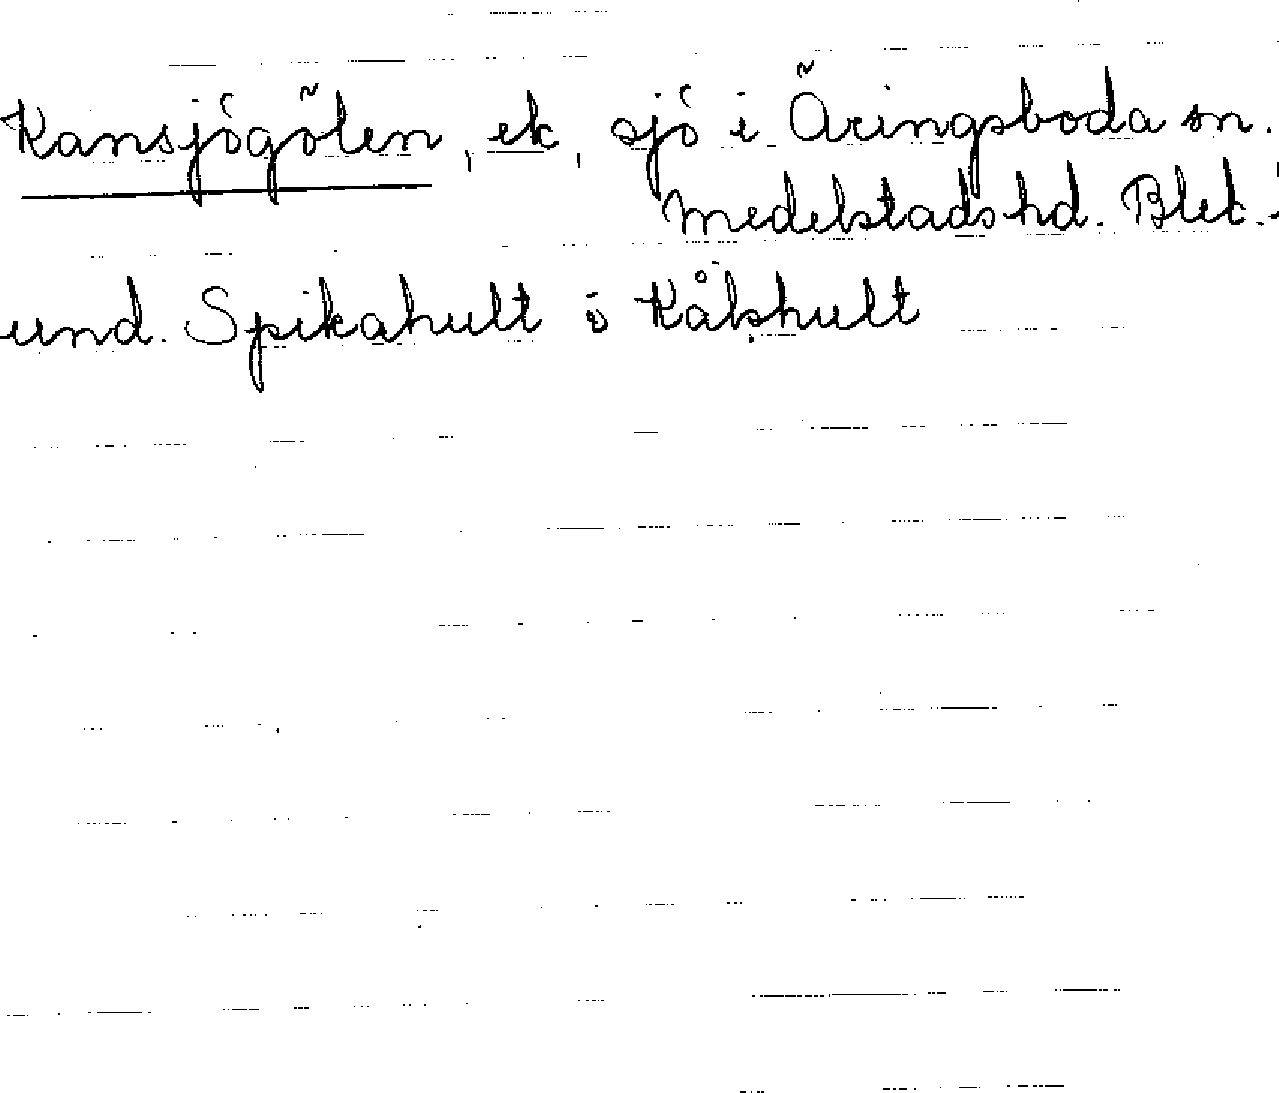 Kansjögölen, ek, sjö i Äringsboda sn.
Medelstads hd. Blek.
und. Spikahult ö Kåkshult